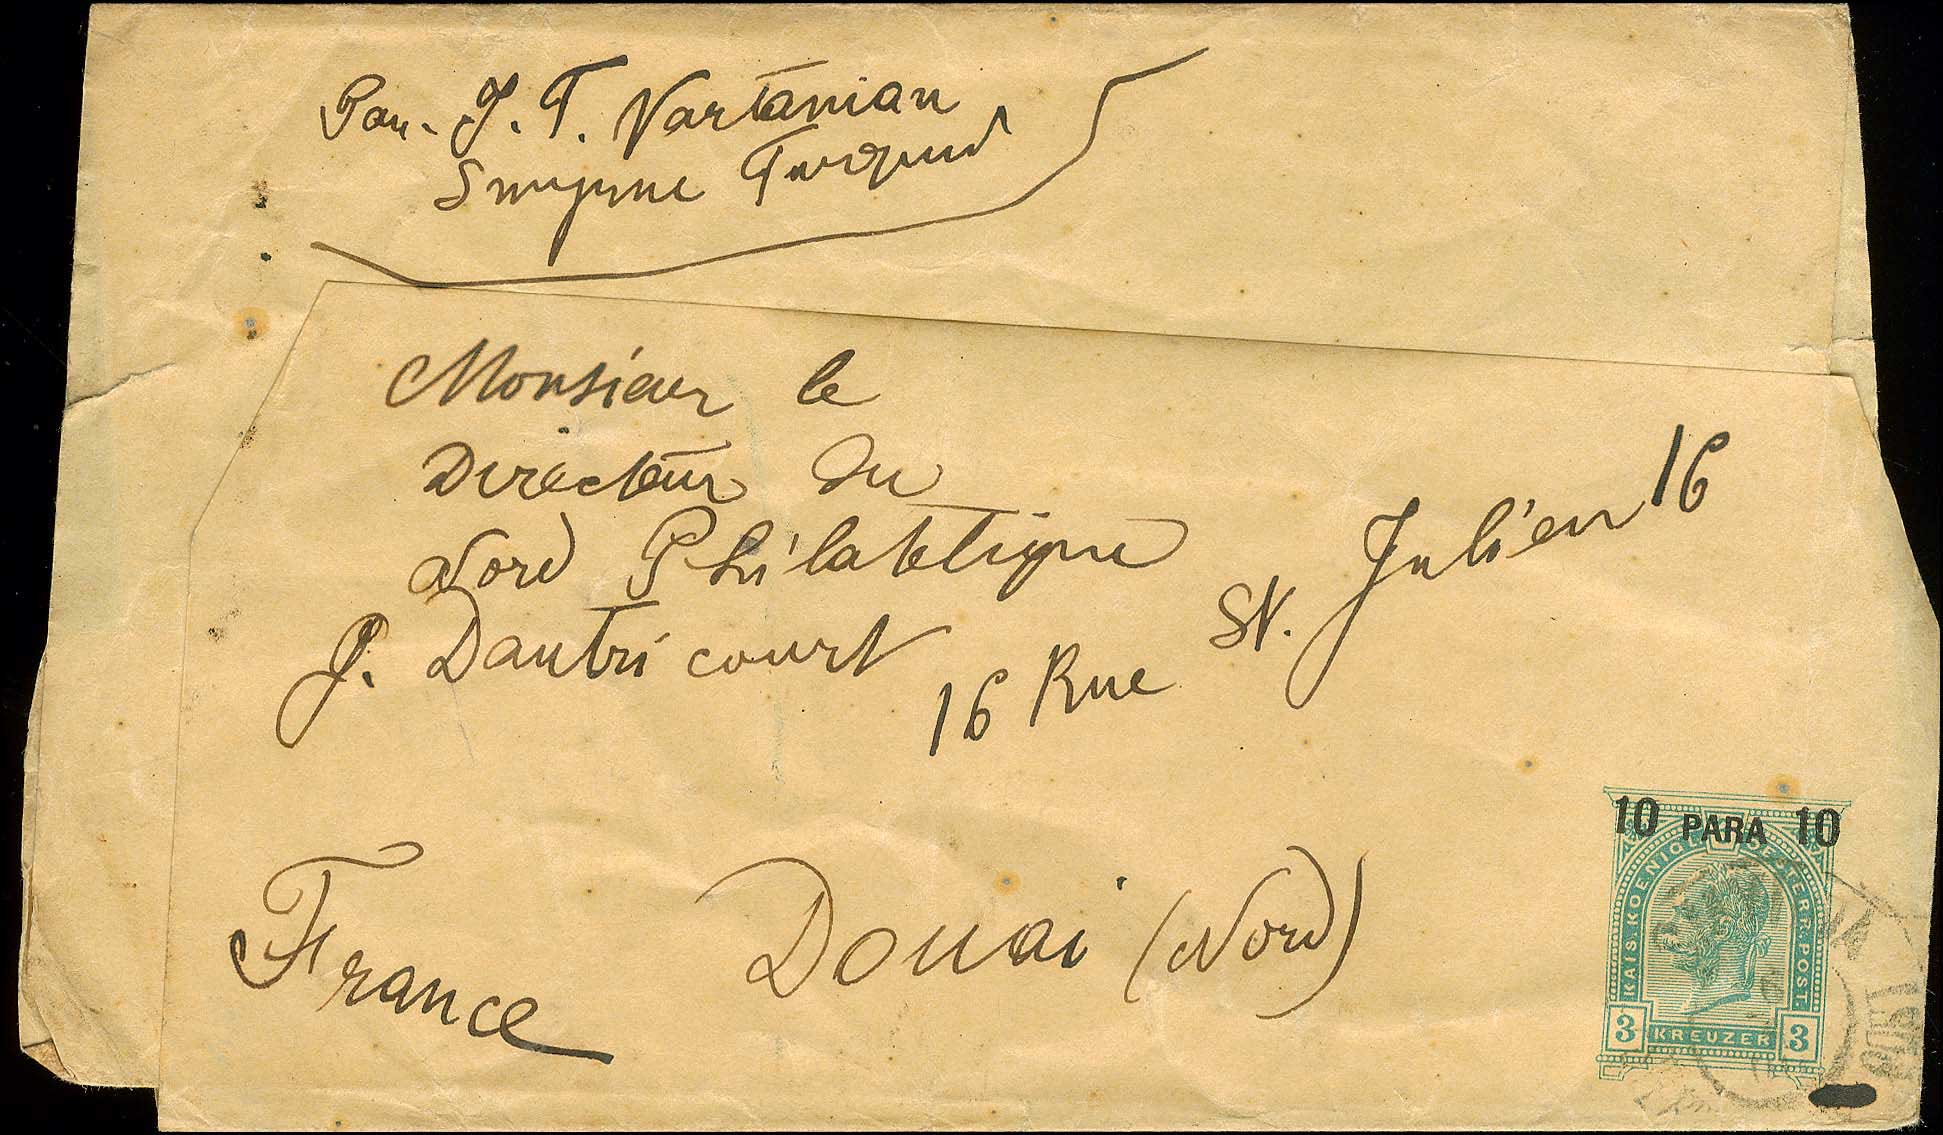 J. T. Vartanian
Smyrne Turquie
Monsieur le
Directeur du
Nord Philatelique
J. Dautricourt 16 Rue St. Julien 16
France Douai (Nord)
10 PARA 10
KAIS. KOENIGL. OESTERR. POST.
3 KREUZER 3